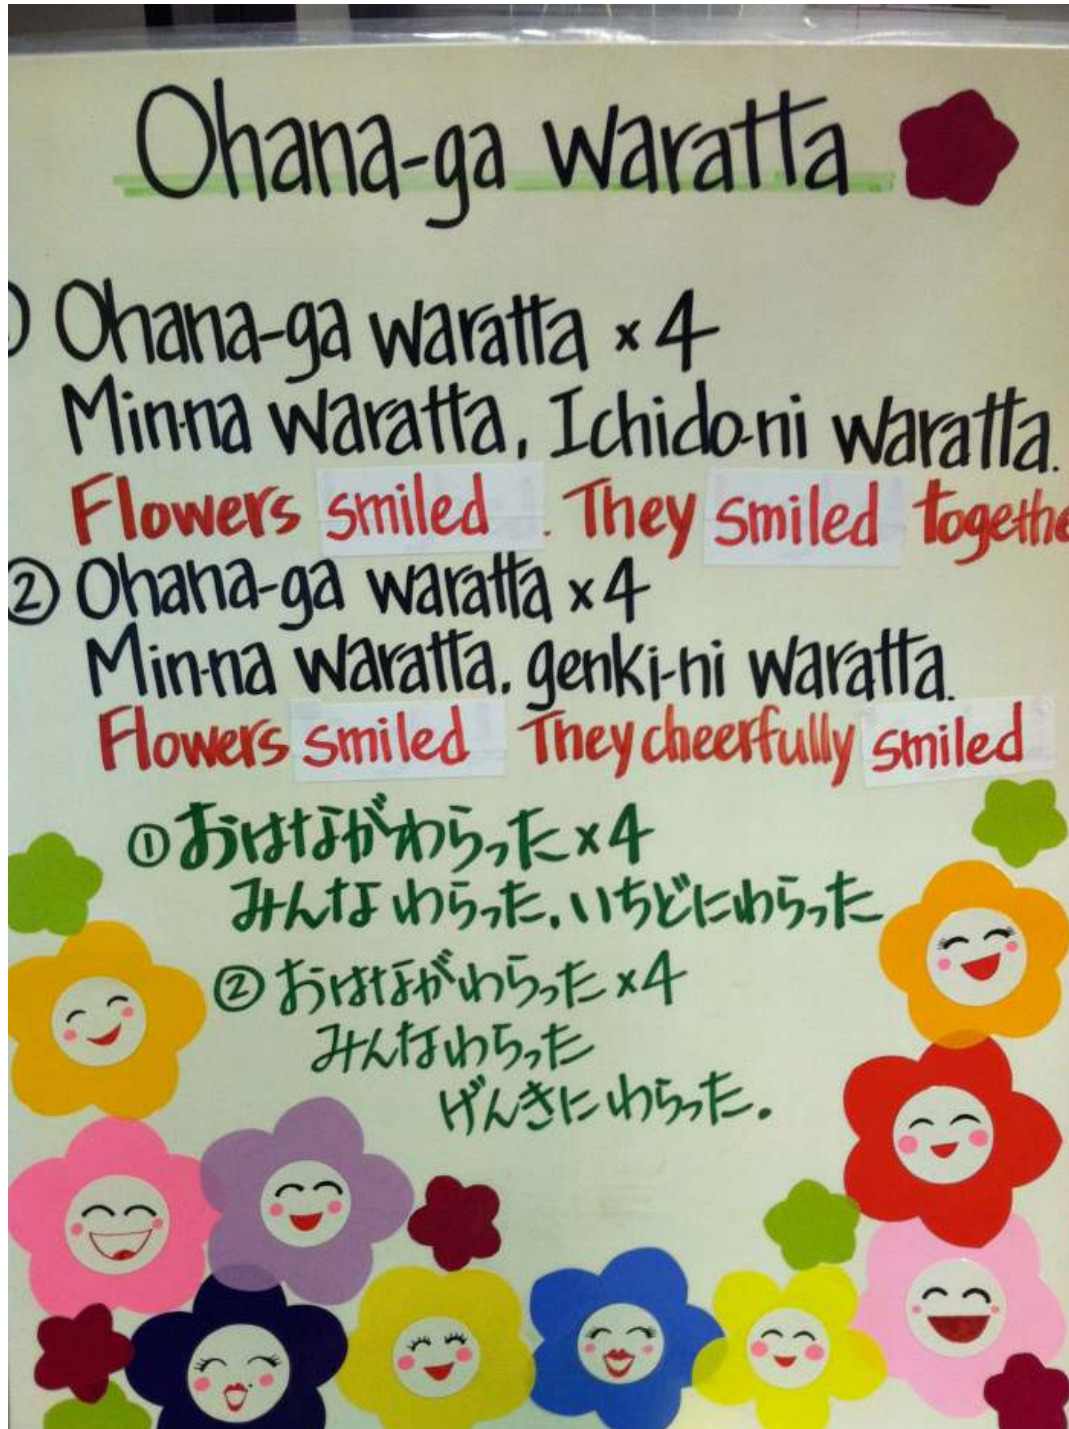 Ohana-ga waratta
Ohana-ga waratta ×4
Min-na waratta, Ichido-ni waratta.
Flowers smiled. They smiled togethe
② Ohana-ga waratta ×4
Min-na waratta. genki-ni waratta.
Flowers smiled They cheerfully smiled
① おはながわらった×4
みんなわらった.いちどにわらった
② おはながわらった×4
みんなわらった
げんきにわらった.